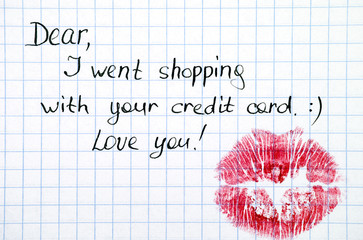 Dear,
I went shopping
with your credit card. :)
Love you!